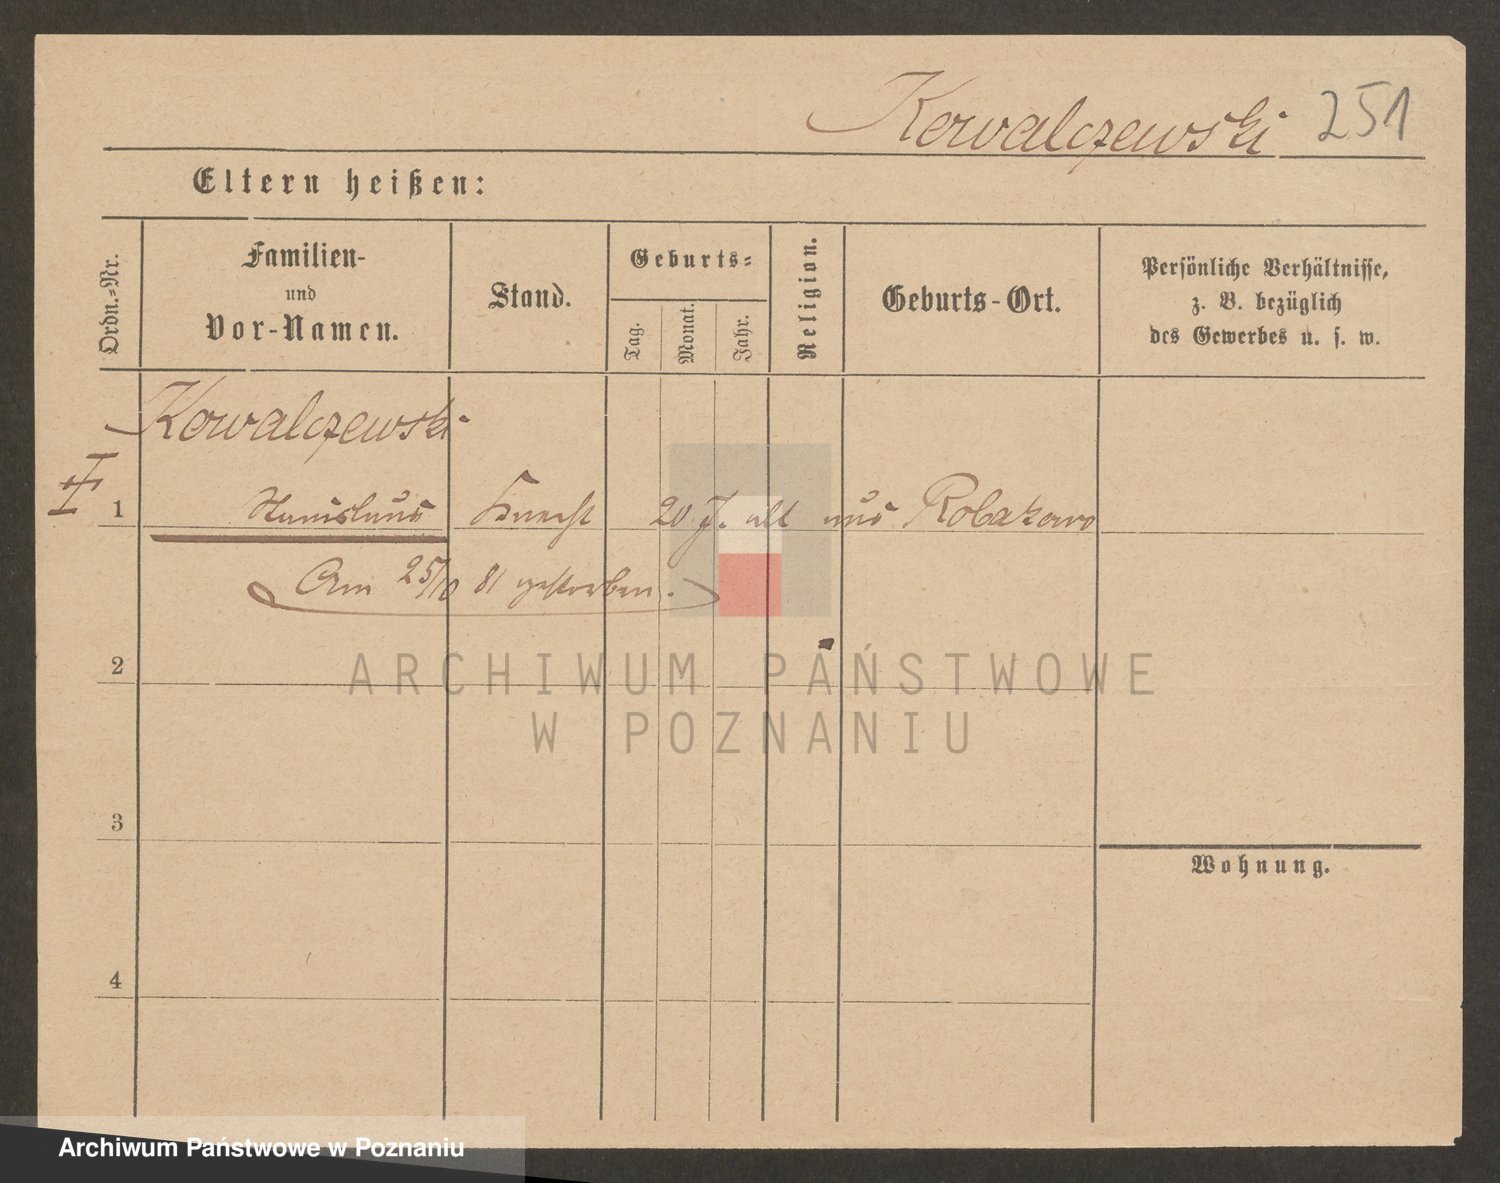 Kowalczewski 251
Eltern heißen:
Ordn.-Nr.
Familien-
und
Vor-Namen.
Stand.
Geburts-
Tag.
Monat.
Jahr.
Religion.
Geburts-Ort.
Persönliche Verhältnisse,
z. B. bezüglich
des Gewerbes u. s. w.
Kowalczewski
1 Stanislaus Knecht 20 J. alt aus Robakowo
Am 25/10 81 gestorben.
2
ARCHIWUM PAŃSTWOWE
W POZNANIU
3
Wohnung.
4
Archiwum Państwowe w Poznaniu